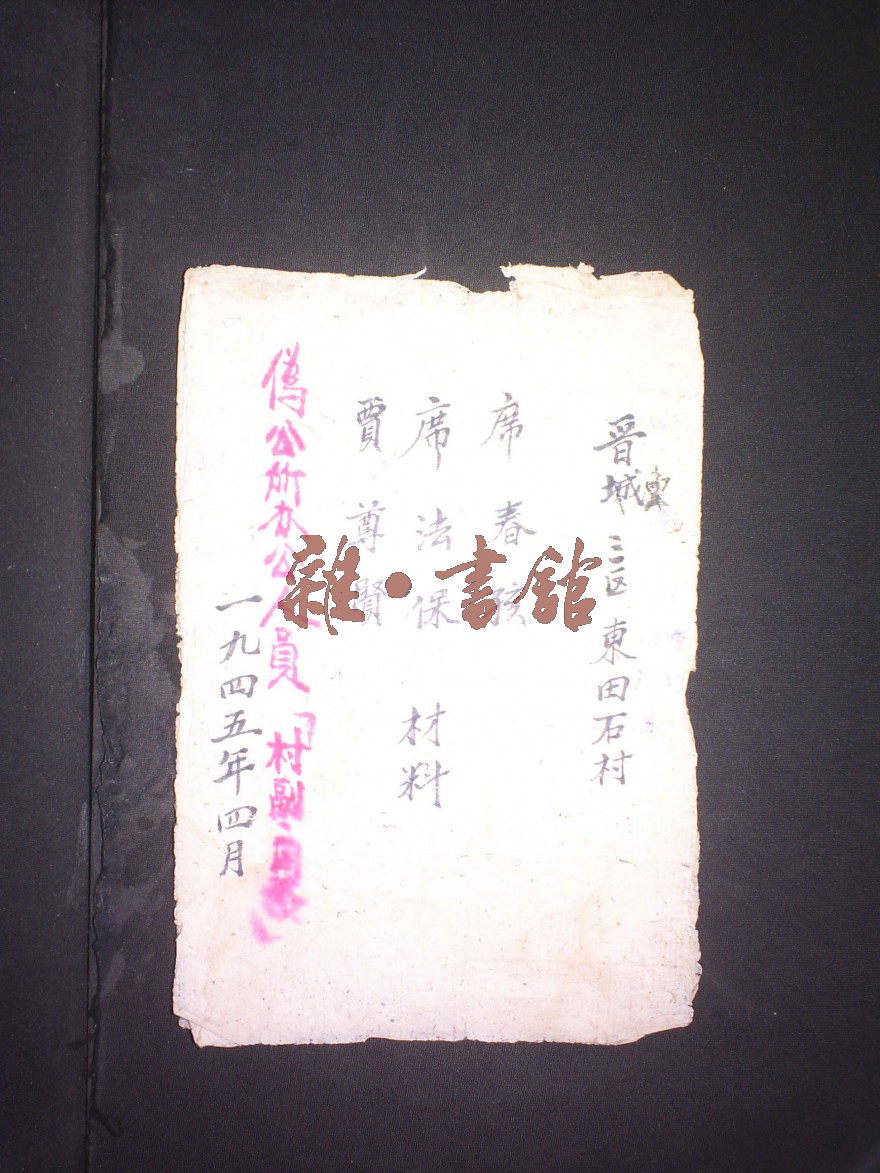 晋城三区東田石村
席春孩
席法保 材料
賈尊賢
偽公所办公人員「村副
一九四五年四月
雜·書館